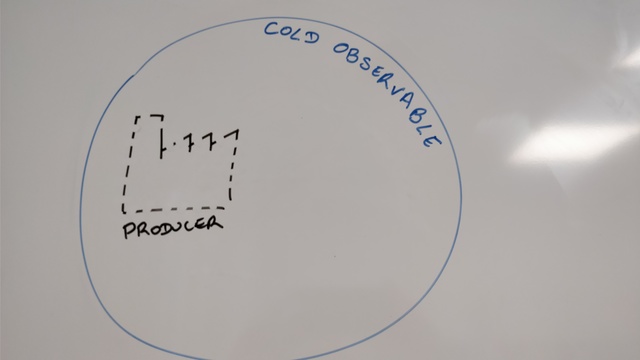 COLD OBSERVABLE
PRODUCER